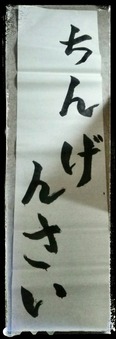 ちんげんさい